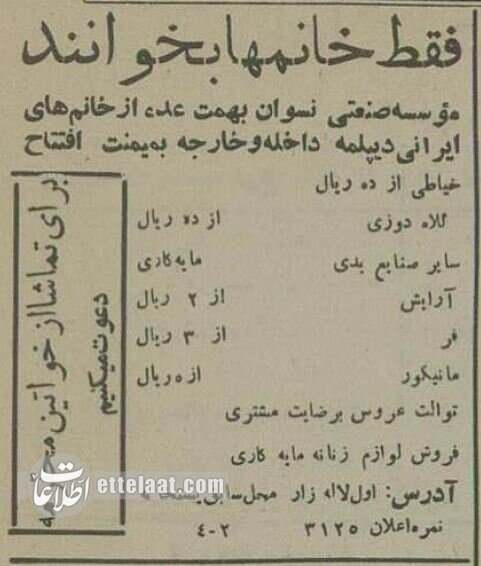 فقط خانمها بخوانند
مؤسسه صنعتی نسوان بهمت عده از خانم های
ایرانی دیپلمه داخله و خارجه بمیمنت افتتاح
خیاطی از ده ریال
کلاه دوزی از ده ریال
سایر صنایع یدی مایه کاری
آرایش از ۲ ریال
فر از ۳ ریال
مانیکور از ۵ ریال
توالت عروس برضایت مشتری
فروش لوازم زنانه مایه کاری
آدرس: اول لاله زار محل سابق
نمره اعلان ۳۱۲۵ ۴-۲
برای تماشا از خواتین
دعوت میکنیم
اطلاعات ettelaat.com